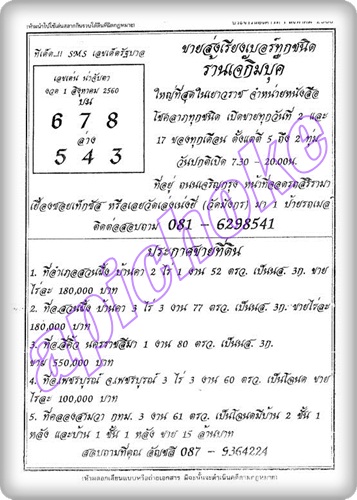 ทีเด็ด..!! SMS เลขเด็ดรัฐบาล
เลขเด่น น่าจับตา
งวด 1 สิงหาคม 2560
บน
6 7 8
ล่าง
5 4 3
ขายส่งเรียงเบอร์ทุกชนิด
ร้านเจ๊กิมบุ๊ค
ใหญ่ที่สุดในเยาวราช จำหน่ายหนังสือ
โชคลาภทุกชนิด เปิดขายทุกวันที่ 2 และ
17 ของทุกเดือน ตั้งแต่ตี 5 ถึง 2 ทุ่ม
วันปกติเปิด 7.30 - 20.00น.
ที่อยู่ ถนนเจริญกรุง หน้าที่จอดรถสิริรามา
เยื้องซอยเท็กซัส หรือเลยวัดเล่งเน่ยยี่ (วัดมังกร) มา 1 ป้ายรถเมล์
ติดต่อสอบถาม 081 - 6298541
ประกาศขายที่ดิน
1. ที่อำเภอสวนผึ้ง บ้านคา 2 ไร่ 1 งาน 52 ตรว. เป็นนส. 3ก. ขาย
ไร่ละ 180,000 บาท
2. ที่อ.สวนผึ้ง บ้านคา 3 ไร่ 3 งาน 77 ตรว. เป็นนส. 3ก. ขายไร่ละ
180,000 บาท
3. ที่อ.สีคิ้ว นครราชสีมา 1 งาน 80 ตรว. เป็นนส. 3ก.
ขาย 550,000 บาท
4. ที่อ.เพชรบูรณ์ จ.เพชรบูรณ์ 3 ไร่ 3 งาน 60 ตรว. เป็นโฉนด ขาย
ไร่ละ 100,000 บาท
5. ที่คลองสามวา กทม. 3 งาน 61 ตรว. เป็นโฉนดมีบ้าน 2 ชั้น 1
หลัง และบ้าน 1 ชั้น 1 หลัง ขาย 15 ล้านบาท
สอบถามที่คุณ อัญชลี 087 - 9364224
apichoke